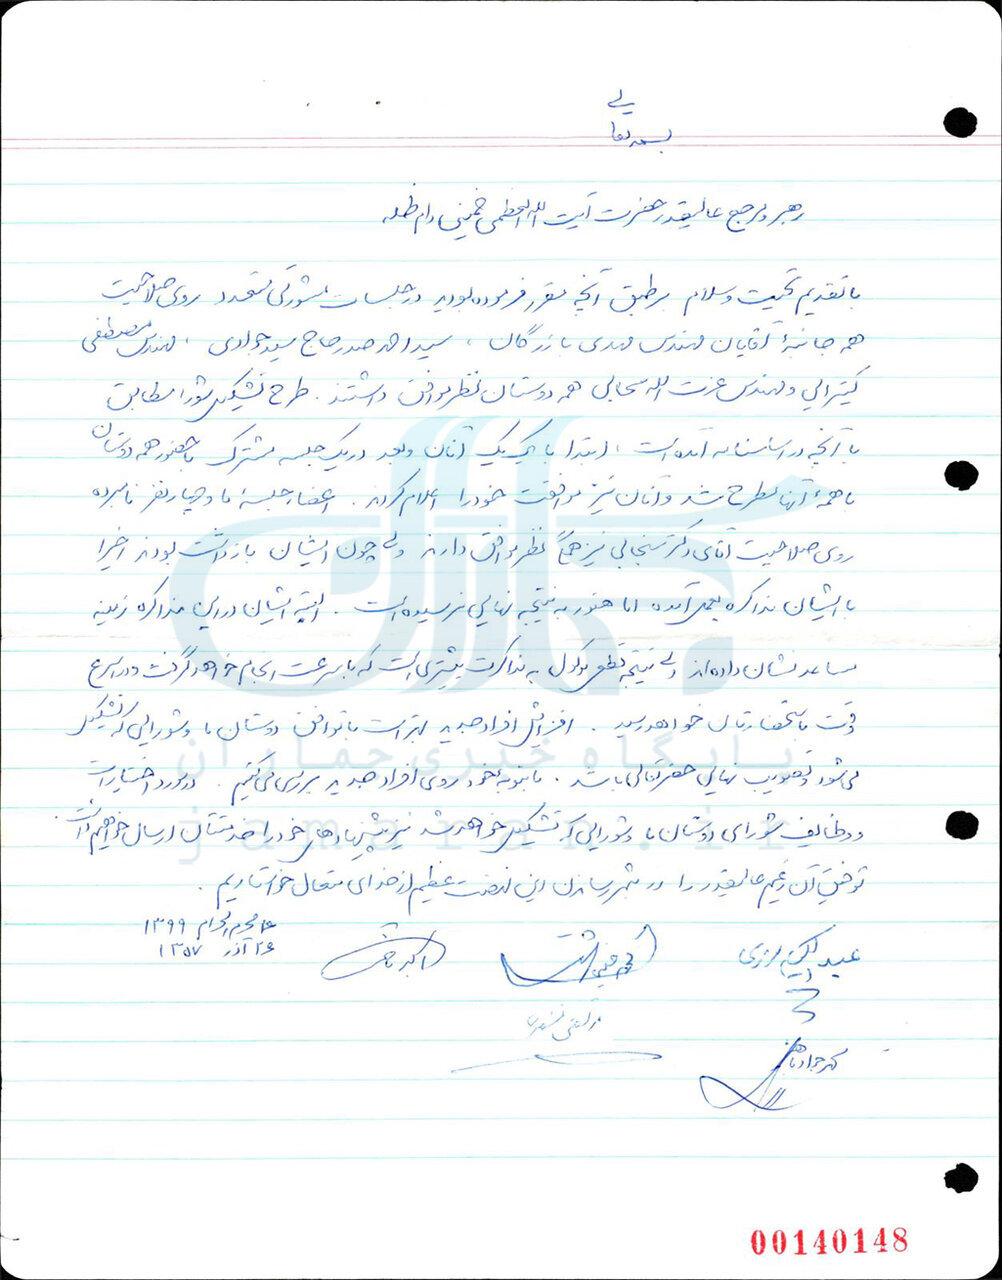 بسمه تعالی
رهبر و مرجع عالیقدر حضرت آیت الله العظمی خمینی دام ظله
با تقدیم تحیت و سلام برطبق آنچه مقرر فرموده بودید در جلسات مشورتی متعدد روی صلاحیت
همه جانبهٔ آقایان مهندس مهدی بازرگان ، سید احمد صدر حاج سید جوادی ، مهندس مصطفی
کتیرائی و مهندس عزت الله سحابی همه دوستان نظر موافق داشتند . طرح تشکیل شورا مطابق
با آنچه در اساسنامه آمده است ، ابتدا با یک یک آنان و بعد در یک جلسه مشترک با حضور همه دوستان
با همهٔ آنها مطرح شد و آنان نیز موافقت خود را اعلام کردند . اعضاء جلسهٔ ما و چهار نفر نامبرده
روی صلاحیت آقای دکتر سنجابی نیز نظر موافق دارند ولی چون ایشان بازداشت بودند اخیرا
با ایشان مذاکره بعمل آمده اما هنوز به نتیجه نهایی نرسیده است . البته ایشان در این مذاکره زمینه
مساعد نشان داده‌اند ولی نتیجه قطعی موکول به مذاکرت بیشتری است که با سرعت انجام خواهد گرفت و در اسرع
وقت باستحضارتان خواهد رسید . افزایش افراد جدید بهتر است با توافق دوستان ما و شورایی که تشکیل
می شود و تصویب نهایی حضرتعالی باشد . ما بنوبه خود روی افراد جدید بررسی می کنیم . در مورد اختیارات
و وظائف شورای دوستان ما و شورایی که تشکیل خواهد شد نیز پیشنهادهای خود را خدمتتان ارسال خواهیم داشت .
توفیق آن زعیم عالیقدر را در بثمر رساندن این نهضت عظیم از خدای متعال خواستاریم .
محرم الحرام ۱۳۹۹
۲۶ آذر ۱۳۵۷
عبدالکریم موسوی
اکبر هاشمی
مرتضی مطهری
محمد جواد باهنر
جماران
پایگاه خبری جماران
jamaran.ir
00140148